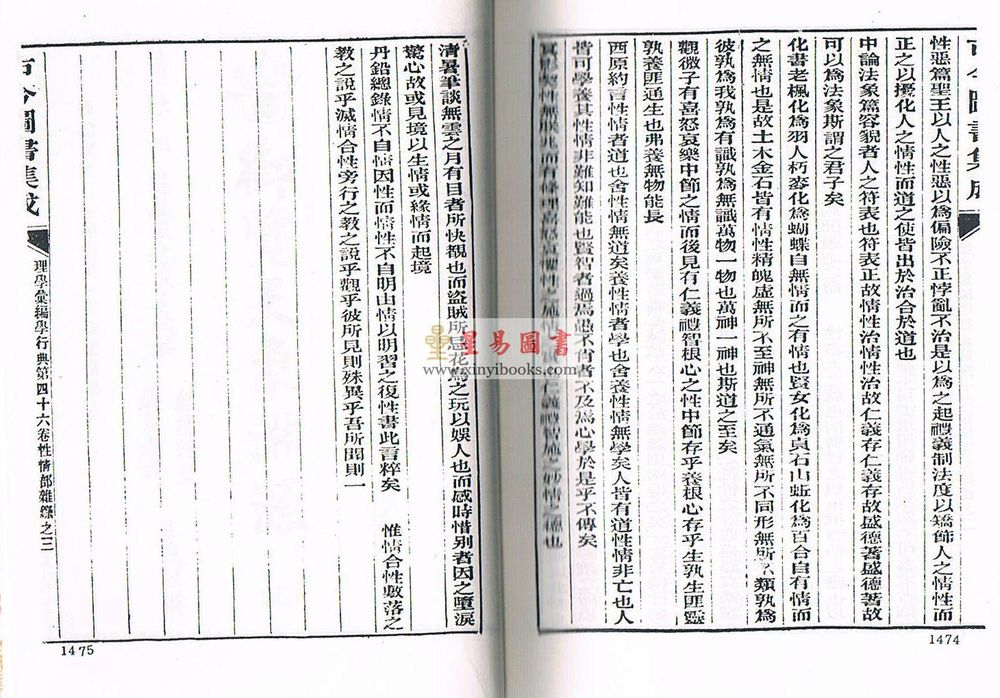 古今圖書集成
性惡篇聖王以人之性惡以爲偏險不正悖亂不治是以爲之起禮義制法度以矯飾人之情性而
正之以擾化人之情性而道之使皆出於治合於道也
中論法象篇容貌者人之符表也符表正故情性治情性治故仁義存仁義存故盛德著盛德著故
可以爲法象斯謂之君子矣
化書老楓化爲羽人朽麥化爲蝴蝶自無情而之有情也賢女化爲貞石山蚯化爲百合自有情而
之無情也是故土木金石皆有情性精魄虛無所不至神無所不通氣無所不同形無所不類孰爲
彼孰爲我孰爲有識孰爲無識萬物一物也萬神一神也斯道之至矣
觀微子有喜怒哀樂中節之情而後見有仁義禮智根心之性中節存乎養根心存乎生孰生匪靈
孰養匪通生也弗養無物能長
西原約言性情者道也舍性情無道矣養性情者學也舍養性情無學矣人皆有道性情非亡也人
皆可學養其性情非難知難能也賢智者過焉愚不肖者不及焉心學於是乎不傳矣
性無朕兆而有條理喜怒哀懼性之施情仁義禮智施之妙情之德也
1474
清暑筆談無雲之月有目者所快覩也而盜賊所忌花鳥之玩以娛人也而感時惜別者因之墮淚
驚心故或見境以生情或緣情而起境
丹鉛總錄情不自情因性而情性不自明由情以明習之復性書此言粹矣 惟情合性敷落之
教之說乎滅情合性旁行之教之說乎觀乎彼所見則殊異乎吾所聞則一
古今圖書集成
理學彙編學行典第四十六卷性情部雜錄之三
1475
星易圖書
www.xinyibooks.com